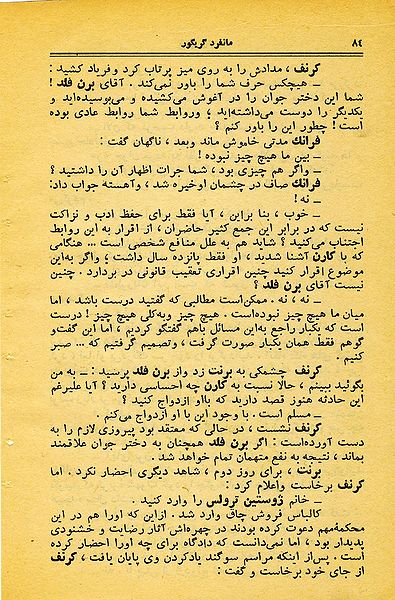 ٨٤ مانفرد گریگور
کرنف ، مدادش را به روی میز پرتاب کرد و فریاد کشید :
ــ هیچکس حرف شما را باور نمی‌کند . آقای برن فلد !
شما این دختر جوان را در آغوش می‌کشیده و می‌بوسیده‌اید و
یکدیگر را دوست می‌داشته‌اید ؛ وروابط شما روابط عادی بوده
است ! چطور این را باور کنم ؟
فرانك مدتی خاموش ماند وبعد ، ناگهان گفت :
ــ بین ما هیچ چیز نبوده !
ــ واگر هم چیزی بود ، شما جرات اظهار آن را داشتید ؟
فرانك صاف در چشمان اوخیره شد ، وآهسته جواب داد:
ــ نه !
ــ خوب ، بنا براین ، آیا فقط برای حفظ ادب و نزاکت
نیست که در برابر این جمع کثیر حاضران ، از اقرار به این روابط
اجتناب می‌کنید ؟ شاید هم به علل منافع شخصی است ... هنگامی
که با کارن آشنا شدید ، او فقط پانزده سال داشت ؛ واگر به‌این
موضوع اقرار کنید چنین اقراری تعقیب قانونی در بردارد . چنین
نیست آقای برن فلد ؟
ــ نه ، نه . ممکن‌است مطالبی که گفتید درست باشد ، اما
میان ما هیچ چیز نبوده‌است . هیچ چیز وبه‌کلی هیچ چیز ! درست
است که یکبار راجع به‌این مسائل باهم گفتگو کردیم ، اما این گفت‌و
گوهم فقط همان یکبار صورت گرفت ، وتصمیم گرفتیم که ... صبر
کنیم .
کرنف چشمکی به برنت زد واز برن فلد پرسید : ــ به من
بگوئید ببینم ، حالا نسبت به کارن چه احساسی دارید ؟ آیا علیرغم
این حادثه هنوز قصد دارید که بااو ازدواج کنید ؟
ــ مسلم است . با وجود این با او ازدواج می‌کنم .
کرنف نشست ، در حالی که معتقد بود پیروزی لازم را به
دست آورده‌است : اگر برن فلد همچنان به دختر جوان علاقمند
بماند ، نتیجه به نفع متهمان تمام خواهد شد .
برنت ، برای روز دوم ، شاهد دیگری احضار نکرد . اما
کرنف برخاست واعلام کرد :
ــ خانم ژوستین ترولس را وارد کنید .
کالباس فروش چاق وارد شد . ازاین که اورا هم در این
محکمه‌مهم دعوت کرده بودند در چهره‌اش آثار رضایت و خشنودی
پدیدار بود ، اما نمی‌دانست که دادگاه برای چه اورا احضار کرده
است . پس‌از اینکه مراسم سوگند یادکردن وی پایان یافت ، کرنف
از جای خود برخاست و گفت :